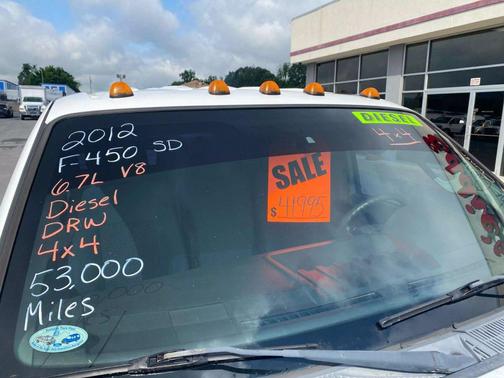 2012
F-450 SD
6.7L V8
Diesel
DRW
4x4
53,000
Miles
DIESEL
4x4
SALE
$41,995